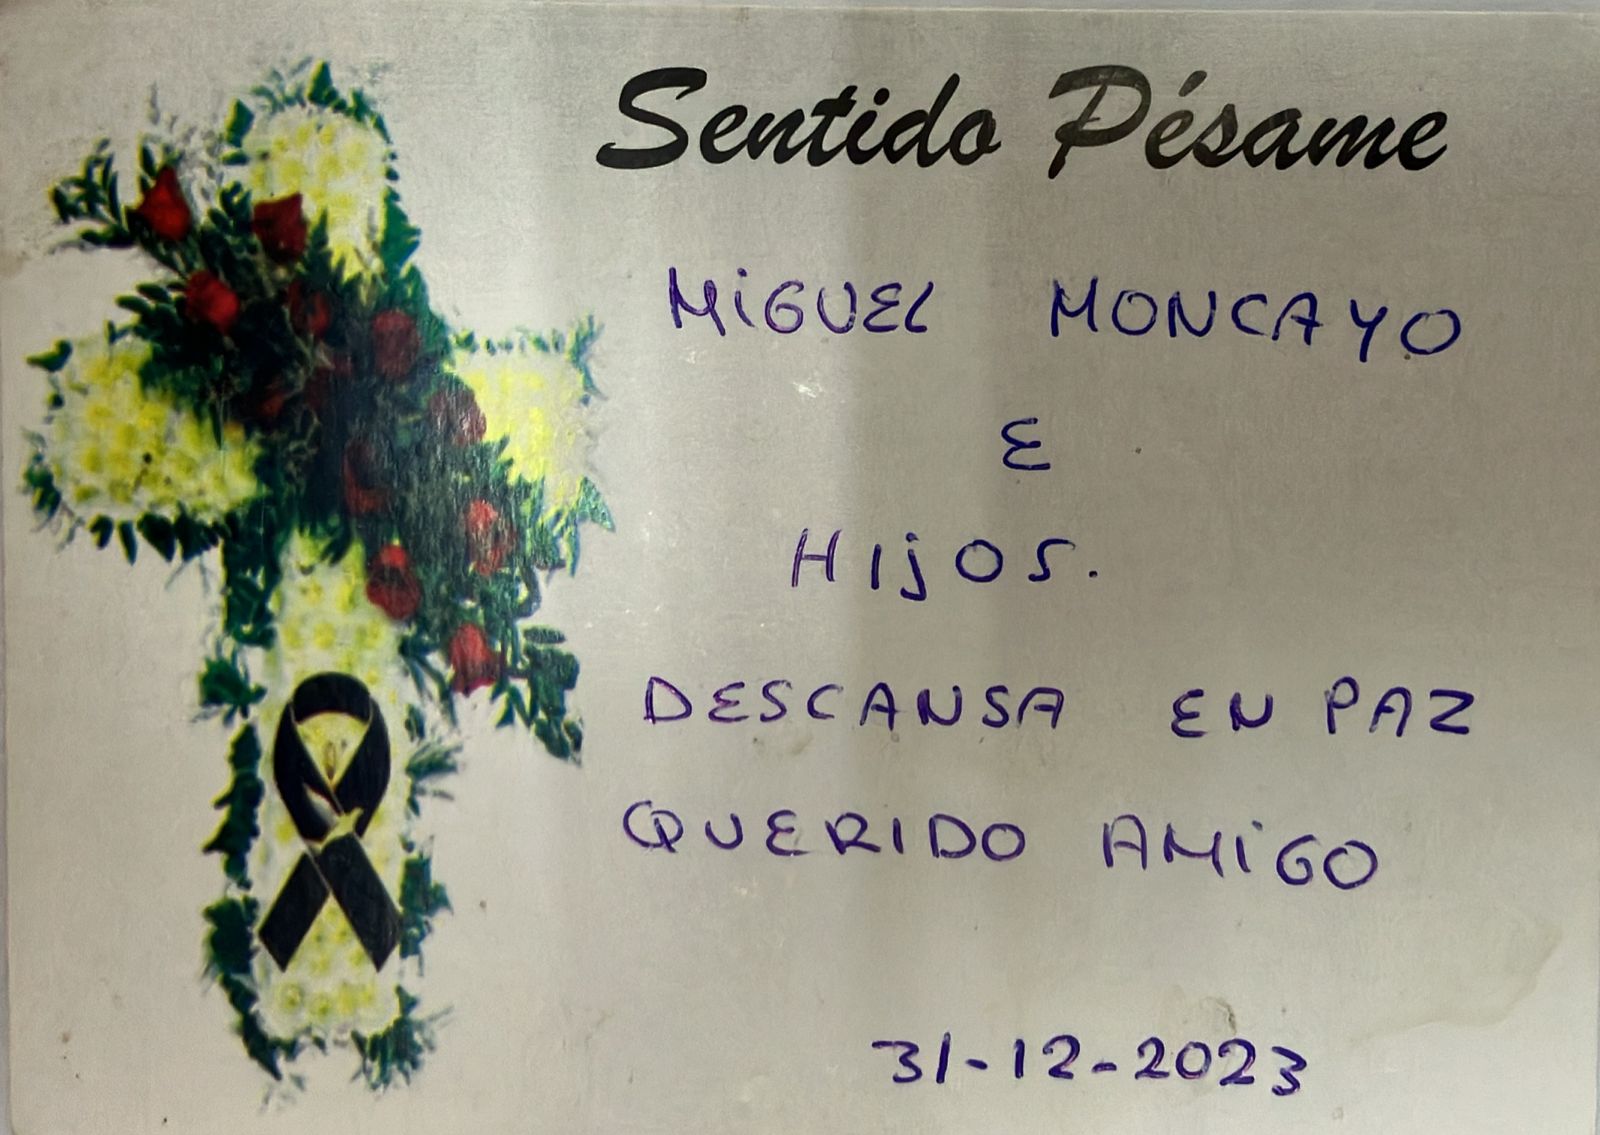 Sentido Pésame
MIGUEL MONCAYO
E
HIJOS.
DESCANSA EN PAZ
QUERIDO AMIGO
31-12-2023